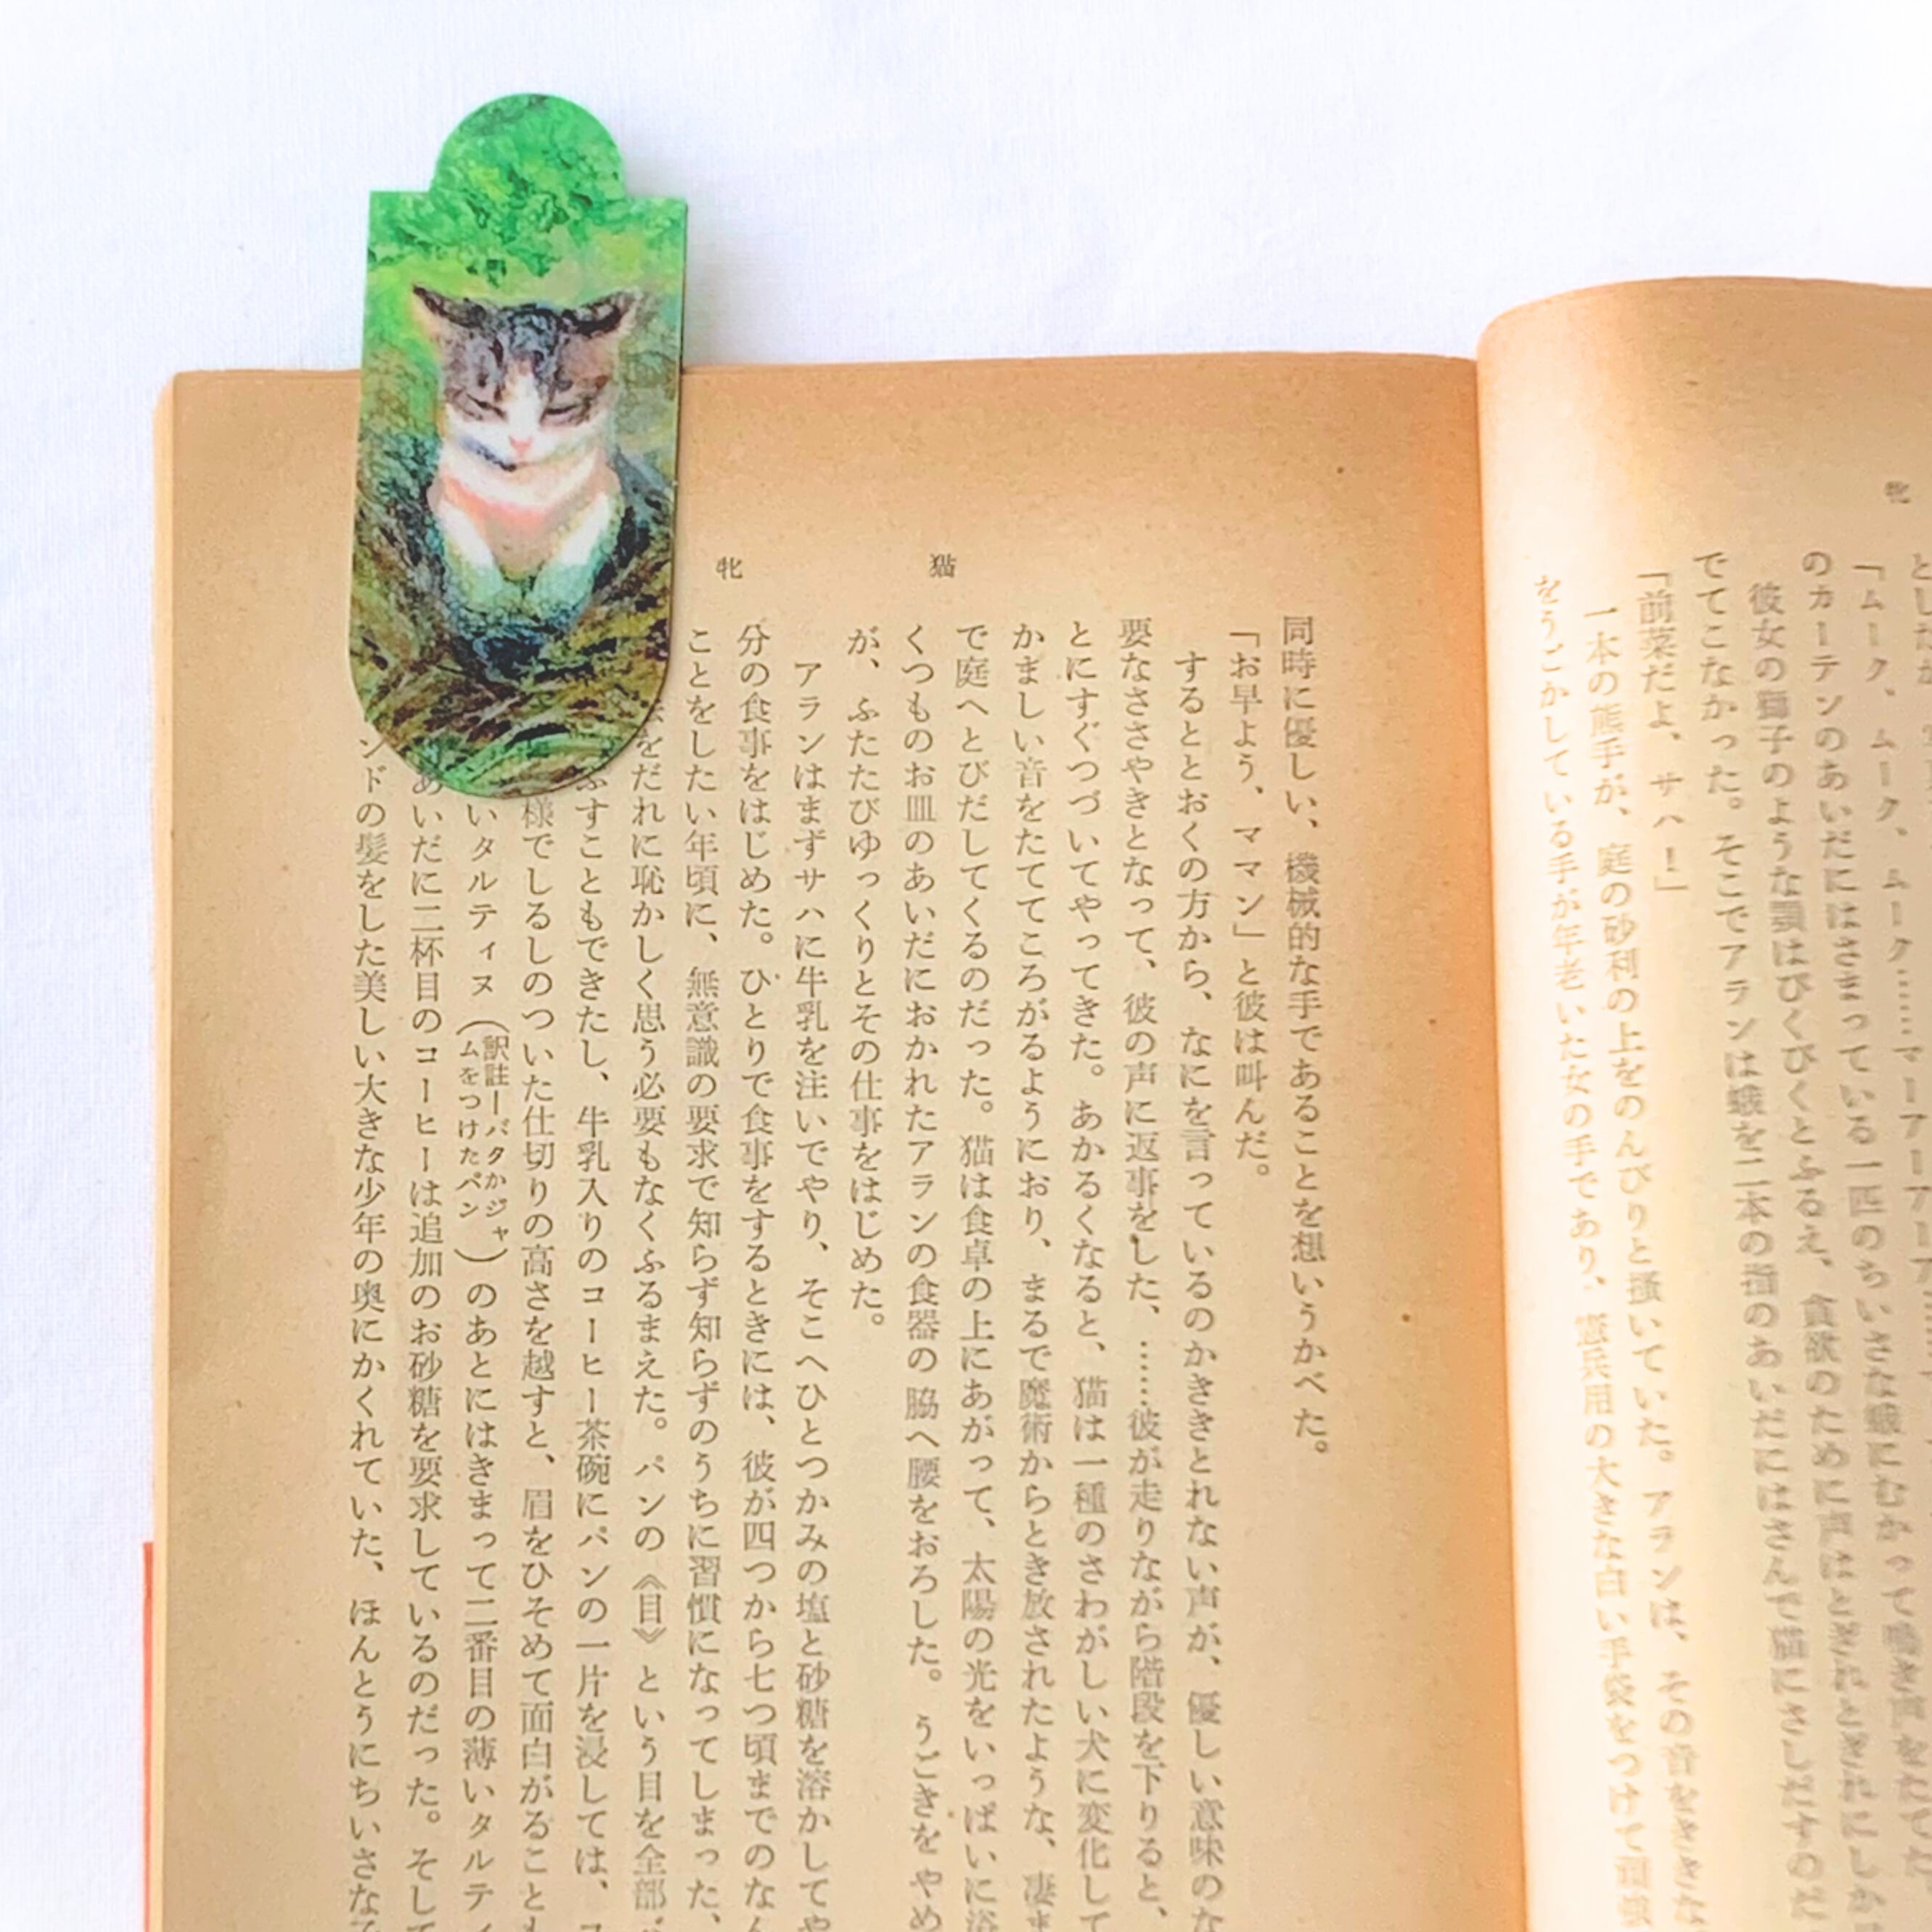 牝
とした
「ムーク、ムーク、ムーク……マーアーアーアー
のカーテンのあいだにはさまっている一匹のちいさな蛾にむかって鳴き声をたてた
彼女の獅子のような顎はびくびくとふるえ、貪欲のために声はとぎれとぎれにしか
でてこなかった。そこでアランは蛾を二本の指のあいだにはさんで猫にさしだすのだ
「前菜だよ、サハ!」
一本の熊手が、庭の砂利の上をのんびりと掻いていた。アランは、その音をききな
をうごかしている手が年老いた女の手であり、憲兵用の大きな白い手袋をつけて頑強
牝 猫
同時に優しい、機械的な手であることを想いうかべた。
「お早よう、ママン」と彼は叫んだ。
するととおくの方から、なにを言っているのかききとれない声が、優しい意味のな
要なささやきとなって、彼の声に返事をした、……彼が走りながら階段を下りると、
とにすぐつづいてやってきた。あかるくなると、猫は一種のさわがしい犬に変化して
かましい音をたててころがるようにおり、まるで魔術からとき放されたような、凄ま
で庭へとびだしてくるのだった。猫は食卓の上にあがって、太陽の光をいっぱいに浴
くつものお皿のあいだにおかれたアランの食器の脇へ腰をおろした。うごきをやめ
が、ふたたびゆっくりとその仕事をはじめた。
アランはまずサハに牛乳を注いでやり、そこへひとつかみの塩と砂糖を溶かしてや
分の食事をはじめた。ひとりで食事をするときには、彼が四つから七つ頃までのなん
ことをしたい年頃に、無意識の要求で知らず知らずのうちに習慣になってしまった、
をだれに恥かしく思う必要もなくふるまえた。パンの《目》という目を全部
ふすこともできたし、牛乳入りのコーヒー茶碗にパンの一片を浸しては、コ
様でしるしのついた仕切りの高さを越すと、眉をひそめて面白がることも
いタルティヌ(訳註―バタかジャムをつけたパン)のあとにはきまって二番目の薄いタルティ
あいだに二杯目のコーヒーは追加のお砂糖を要求しているのだった。そして
ンドの髪をした美しい大きな少年の奥にかくれていた、ほんとうにちいさな子